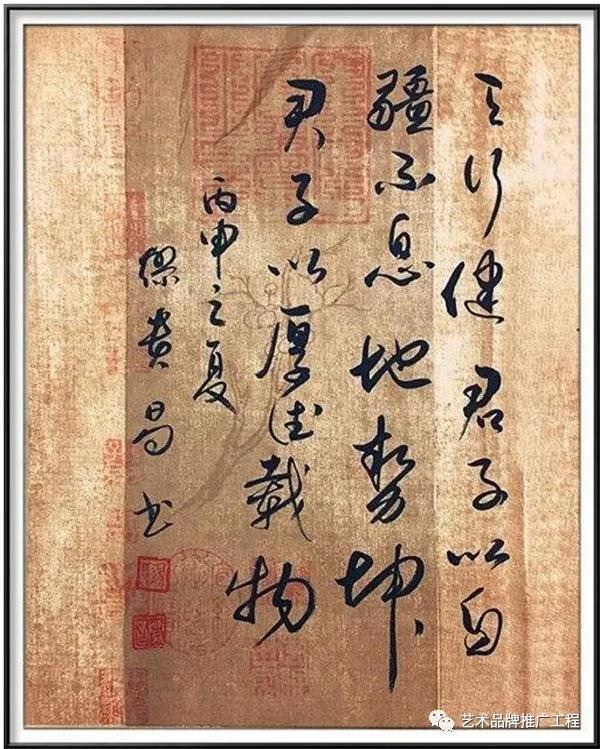 天行健君子以自
疆不息地势坤
君子以厚德载物
丙申之夏
缪贵昌书
艺术品牌推广工程